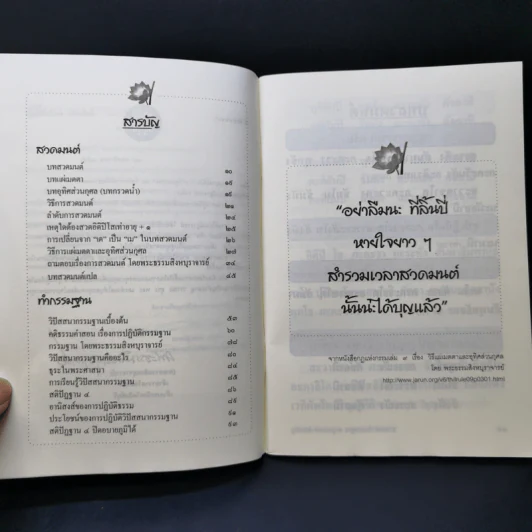 สารบัญ
สวดมนต์
บทสวดมนต์ ๑๐
บทแผ่เมตตา ๑๙
บทอุทิศส่วนกุศล (บทกรวดน้ำ) ๑๙
วิธีการสวดมนต์ ๒๑
ลำดับการสวดมนต์ ๒๔
เหตุใดต้องสวดอิติปิโสเท่าอายุ + ๑ ๒๕
การเปลี่ยนจาก "เต" เป็น "เม" ในบทสวดมนต์ ๒๖
วิธีการแผ่เมตตาและอุทิศส่วนกุศล ๒๗
ถามตอบเรื่องการสวดมนต์ โดยพระธรรมสิงหบุราจารย์ ๓๔
บทสวดมนต์แปล ๔๕
ทำกรรมฐาน
วิปัสสนากรรมฐานเบื้องต้น ๕๓
คติธรรมคำสอน เรื่องการปฏิบัติกรรมฐาน ๖๐
กรรมฐาน โดยพระธรรมสิงหบุราจารย์ ๗๐
วิปัสสนากรรมฐานคืออะไร ๘๐
ธุระในพระศาสนา ๘๔
การเรียนรู้วิปัสสนากรรมฐาน ๘๕
สติปัฏฐาน ๔ ๘๖
อานิสงส์ของการปฏิบัติธรรม
ประโยชน์ของการปฏิบัติวิปัสสนากรรมฐาน ๙๑
สติปัฏฐาน ๔ ปิดอบายภูมิได้ ๙๓
"อย่าลืมนะ ที่ลิ้นปี่
หายใจยาว ๆ
สำรวมเวลาสวดมนต์
นั้นน่ะได้บุญแล้ว"
จากหนังสือกฎแห่งกรรมเล่ม ๙ เรื่อง วิธีแผ่เมตตาและอุทิศส่วนกุศล
โดย พระธรรมสิงหบุราจารย์